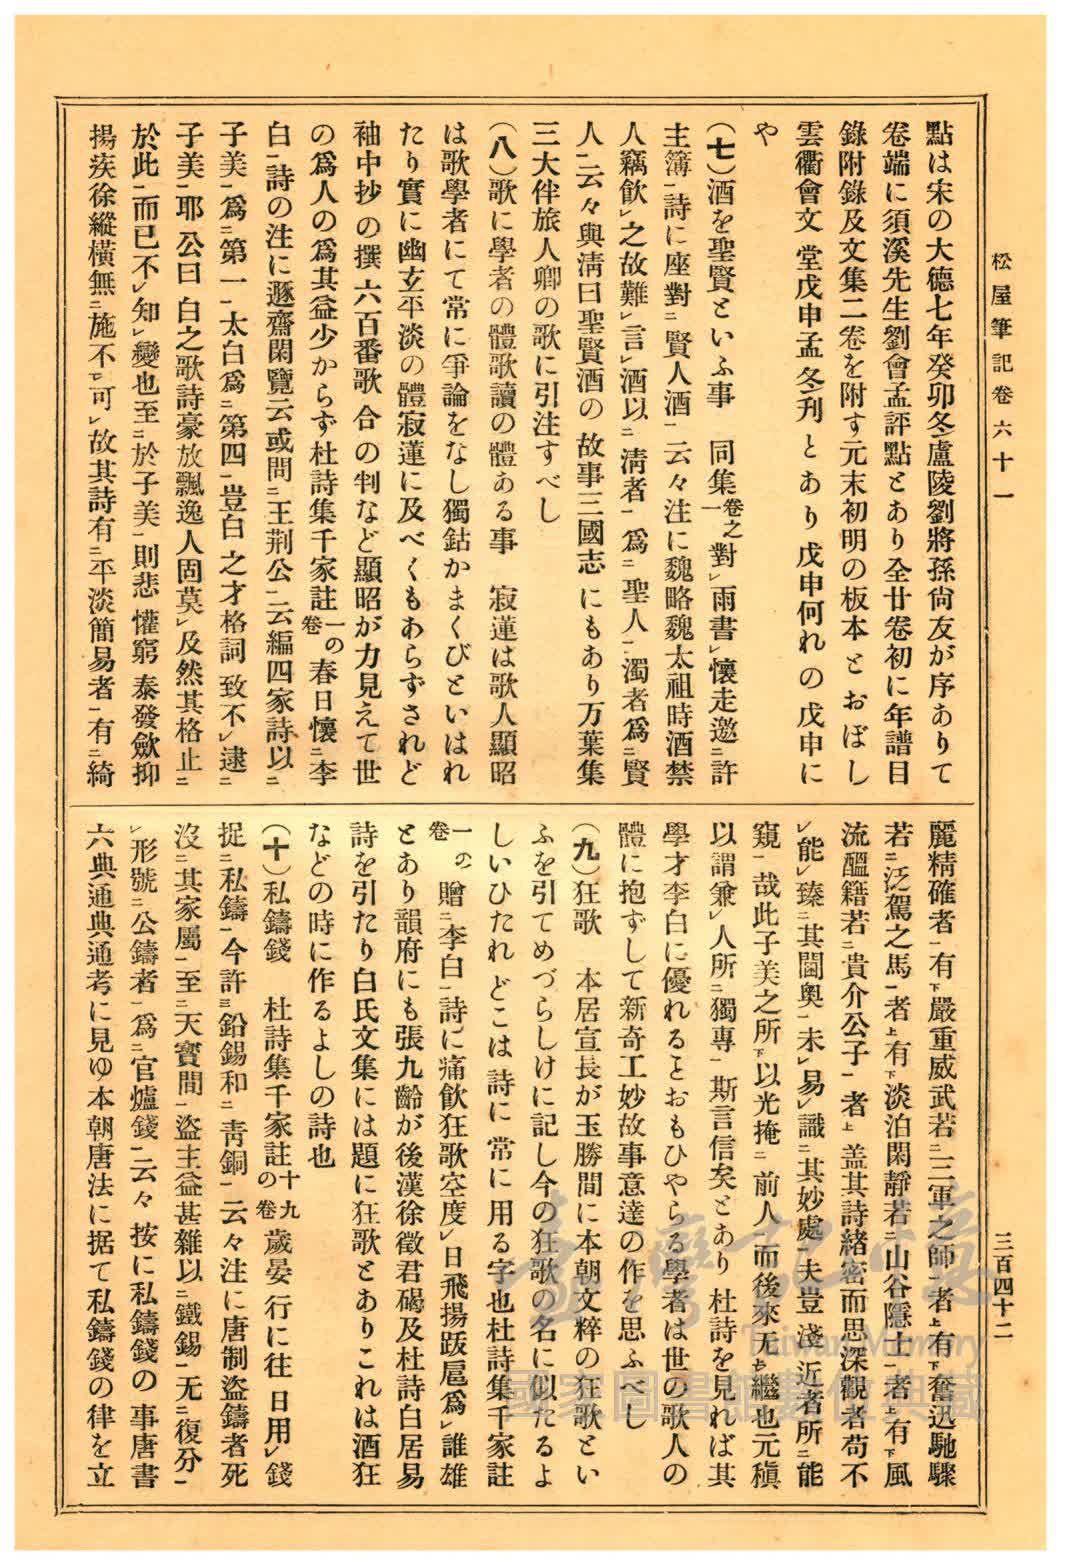 松屋筆記卷六十一
三百四十二
點は宋の大德七年癸卯冬盧陵劉將孫尙友が序ありて
卷端に須溪先生劉會孟評點とあり全廿卷初に年譜目
錄附錄及文集二卷を附す元末初明の板本とおぼし
雲衢會文堂戊申孟冬刋とあり戊申何れの戊申に
や
(七)酒を聖賢といふ事　同集卷之一對レ雨書レ懷走邀二許
主簿一詩に座對二賢人酒一云々注に魏略魏太祖時酒禁
人竊飮レ之故難レ言レ酒以二淸者一爲二聖人一濁者爲二賢
人一云々與淸曰聖賢酒の故事三國志にもあり万葉集
三大伴旅人卿の歌に引注すべし
(八)歌に學者の體歌讀の體ある事　寂蓮は歌人顯昭
は歌學者にて常に爭論をなし獨鈷かまくびといはれ
たり實に幽玄平淡の體寂蓮に及べくもあらずされど
袖中抄の撰六百番歌合の判など顯昭が力見えて世
の爲人の爲其益少からず杜詩集千家註一の卷春日懷二李
白一詩の注に遯齋閑覽云或問二王荆公一云編四家詩以二
子美一爲二第一一太白爲二第四一豈白之才格詞致不レ逮二
子美一耶公曰白之歌詩豪放飄逸人固莫レ及然其格止二
於此一而已不レ知レ變也至二於子美一則悲懽窮泰發歛抑
揚疾徐縱橫無二施不一レ可レ故其詩有二平淡簡易者一有二綺
麗精確者一有下嚴重威武若二三軍之師一者上有下奮迅馳驟
若二泛駕之馬一者上有下淡泊閑靜若二山谷隱士一者上有下風
流醞籍若二貴介公子一者上盖其詩緖密而思深觀者苟不
レ能レ臻二其閫奥一未レ易レ識二其妙處一夫豈淺近者所二能
窺一哉此子美之所下以光掩二前人一而後來无上レ繼也元稹
以謂兼レ人所二獨專一斯言信矣とあり杜詩を見れば其
學才李白に優れるとおもひやらる學者は世の歌人の
體に抱ずして新奇工妙故事意達の作を思ふべし
(九)狂歌　本居宣長が玉勝間に本朝文粹の狂歌とい
ふを引てめづらしけに記し今の狂歌の名に似たるよ
しいひたれどこは詩に常に用る字也杜詩集千家註
一の卷贈二李白一詩に痛飮狂歌空度レ日飛揚跋扈爲レ誰雄
とあり韻府にも張九齡が後漢徐徵君碣及杜詩白居易
詩を引たり白氏文集には題に狂歌とありこれは酒狂
などの時に作るよしの詩也
(十)私鑄錢　杜詩集千家註十九の卷歲晏行に往日用レ錢
捉二私鑄一今許三鉛錫和二靑銅一云々注に唐制盜鑄者死
沒二其家屬一至二天寶間一盜主益甚雜以二鐵錫一无二復分一
レ形號二公鑄者一爲二官爐錢一云々按に私鑄錢の事唐書
六典通典通考に見ゆ本朝唐法に据て私鑄錢の律を立
臺灣記憶
Taiwan Memory
國家圖書館數位典藏